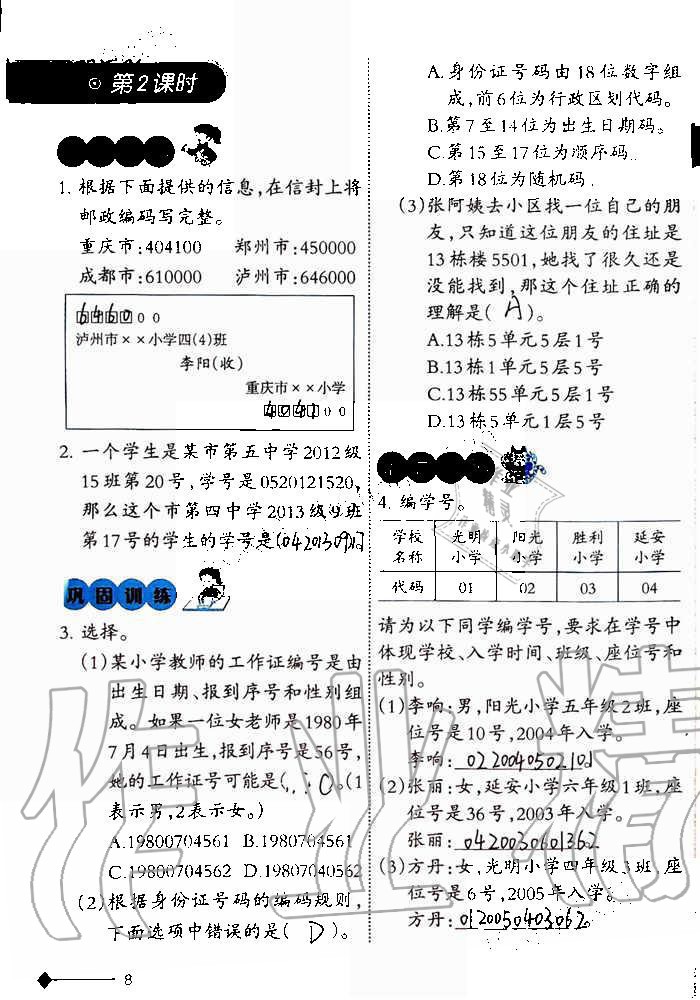 第2课时
1. 根据下面提供的信息,在信封上将
邮政编码写完整。
重庆市:404100 郑州市:450000
成都市:610000 泸州市:646000
646000
泸州市××小学四(4)班
李阳(收)
重庆市××小学
404100
2. 一个学生是某市第五中学2012级
15班第20号,学号是0520121520,
那么这个市第四中学2013级9班
第17号的学生的学号是(0420130917)
巩固训练
3. 选择。
(1)某小学教师的工作证编号是由
出生日期、报到序号和性别组
成。如果一位女老师是1980年
7月4日出生,报到序号是56号,
她的工作证号可能是( C )。(1
表示男,2表示女。)
A.19800704561 B.1980704561
C.19800704562 D.19807040562
(2)根据身份证号码的编码规则,
下面选项中错误的是( D )。
8
A.身份证号码由18位数字组
成,前6位为行政区划代码。
B.第7至14位为出生日期码。
C.第15至17位为顺序码。
D.第18位为随机码。
(3)张阿姨去小区找一位自己的朋
友,只知道这位朋友的住址是
13栋楼5501,她找了很久还是
没能找到,那这个住址正确的
理解是( A )。
A.13栋5单元5层1号
B.13栋5单元1层5号
C.13栋55单元1层1号
D.13栋5单元5层5号
4. 编学号。
学校名称 光明小学 阳光小学 胜利小学 延安小学
代码 01 02 03 04
请为以下同学编学号,要求在学号中
体现学校、入学时间、班级、座位号和
性别。
(1)李响:男,阳光小学五年级2班,座
位号是10号,2004年入学。
李响:0220040502101
(2)张丽:女,延安小学六年级1班,座
位号是36号,2003年入学。
张丽:0420030601362
(3)方丹:女,光明小学四年级3班,座
位号是6号,2005年入学。
方丹:0120050403062
作业精